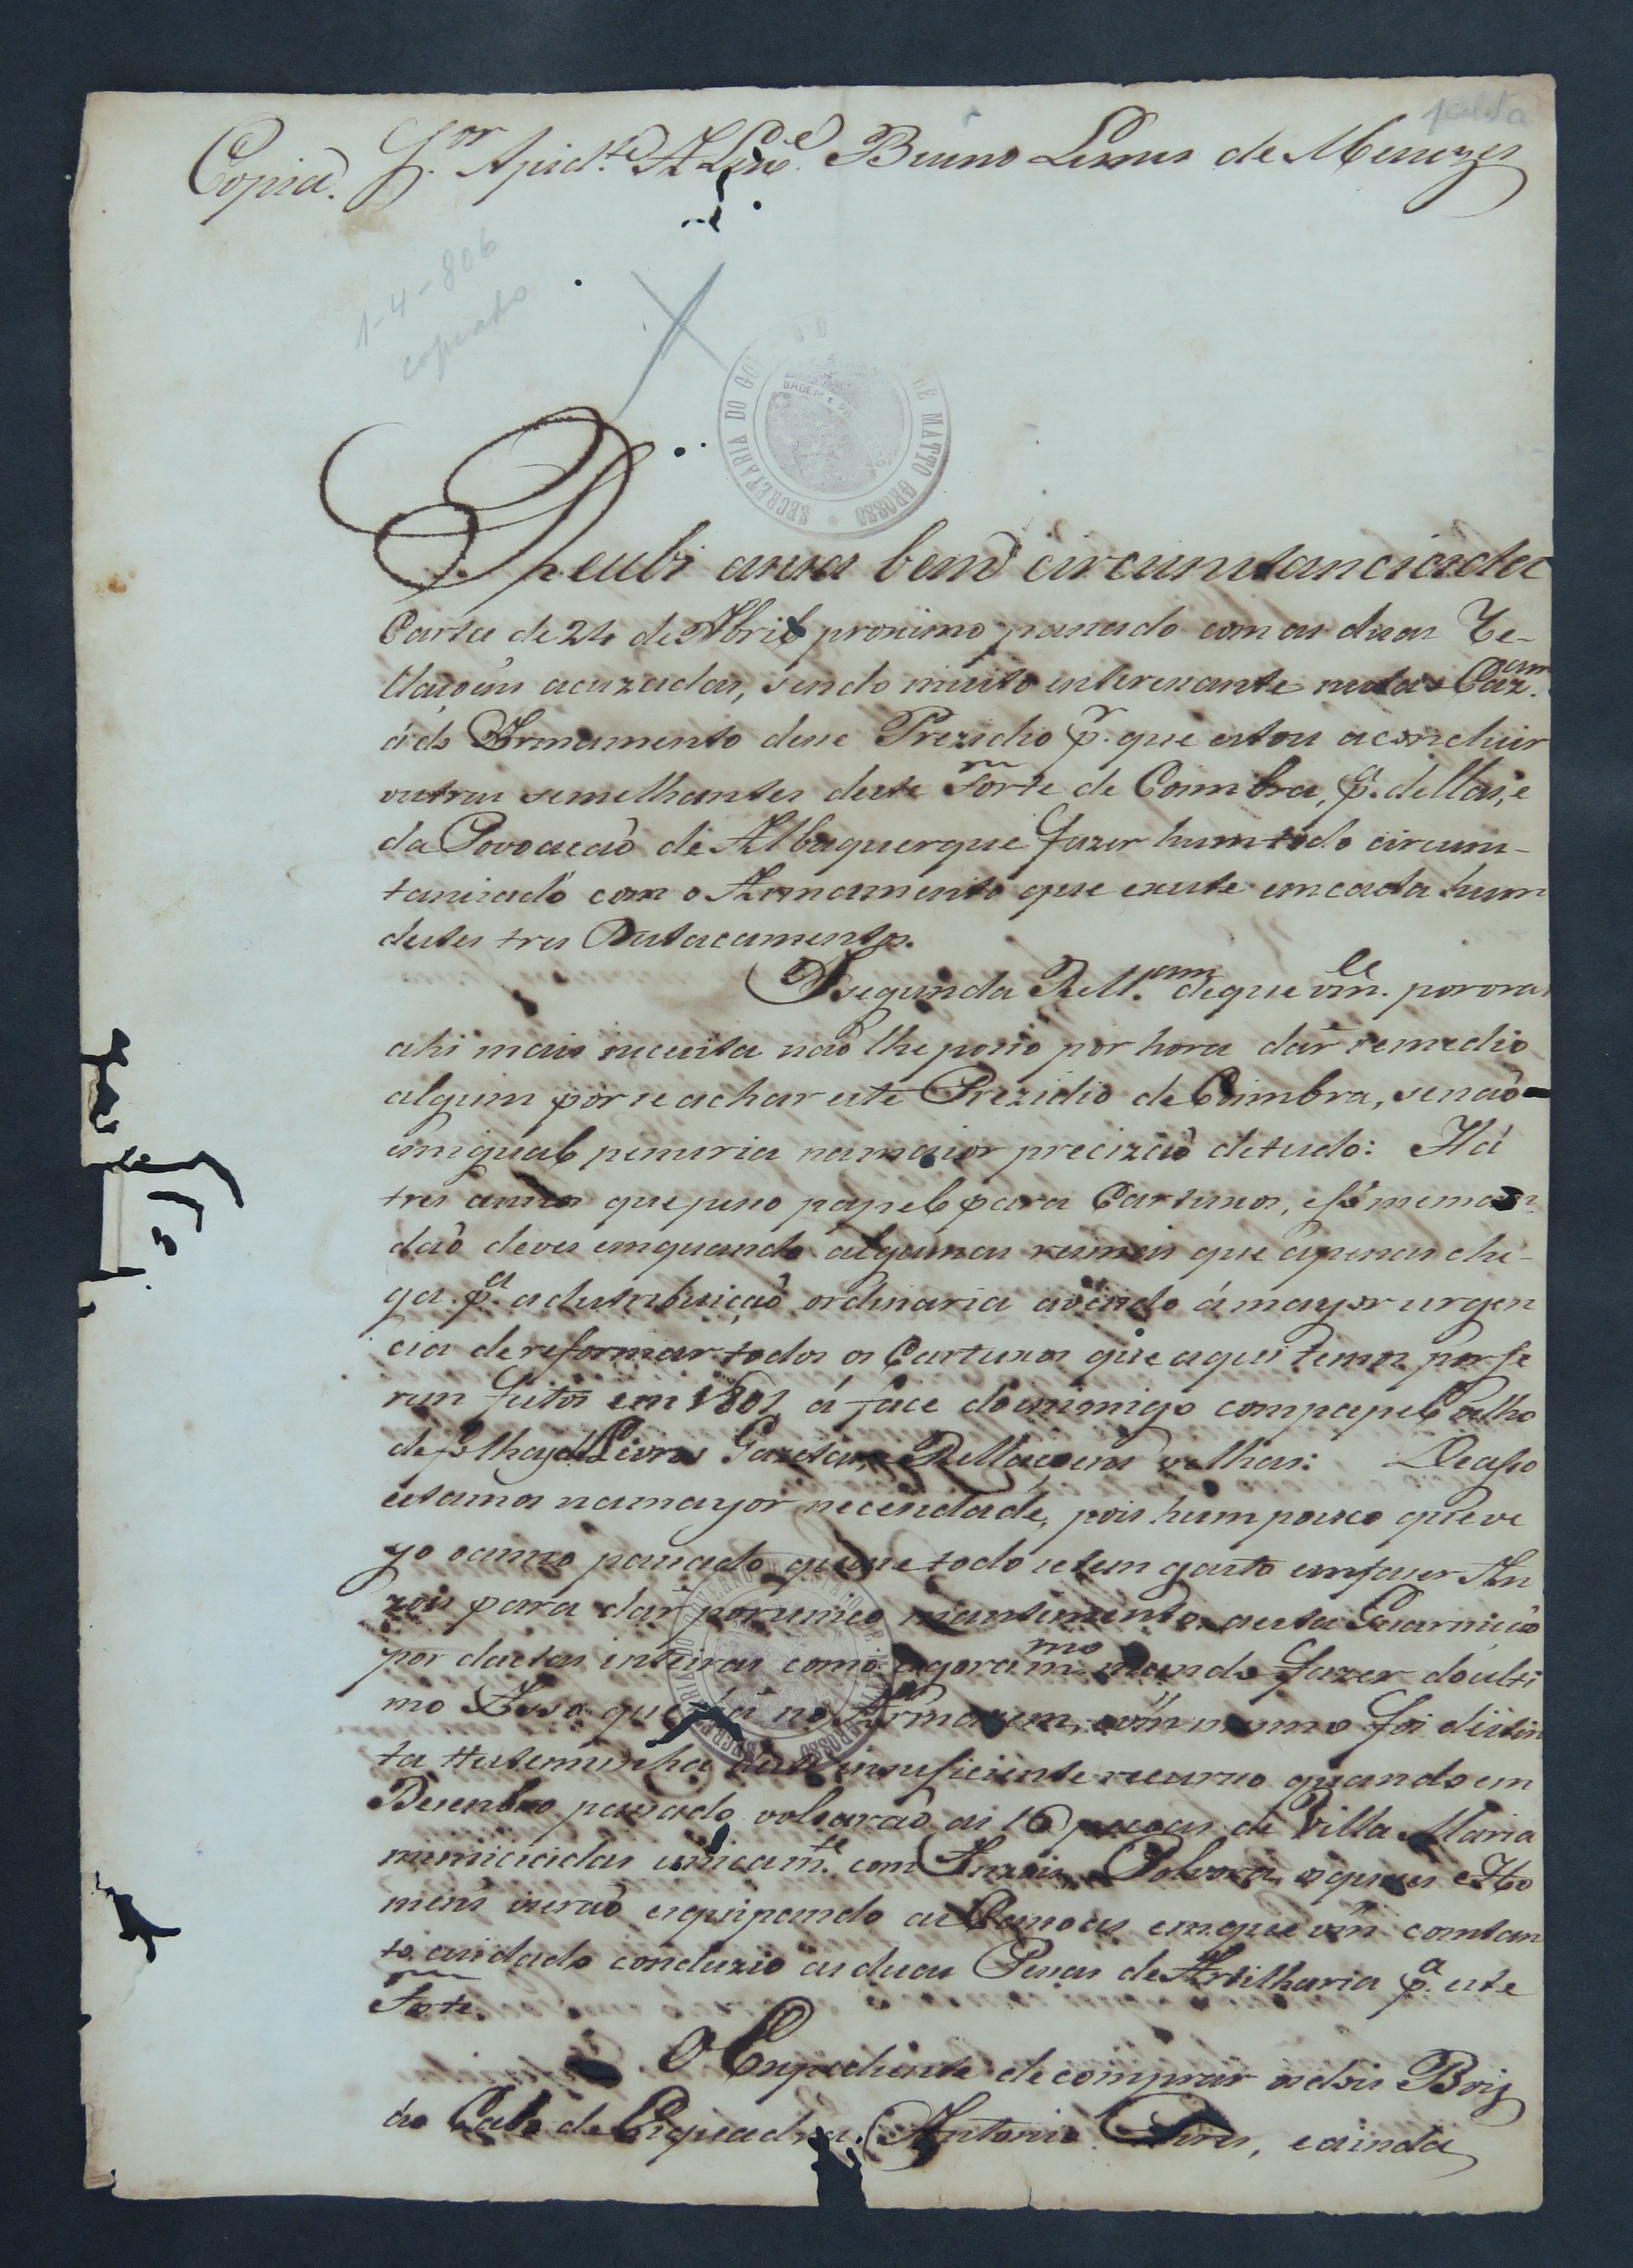 Copia. S.or Ajud.te Bruno Lemes de Menezes
1-4-806
copiado
SECRETARIA DO GOV DE MATTO GROSSO
Recebi a sua bem circunstanciada
Carta de 24 de Abril proximo passado com as duas Re-
llaçoens acuzadas, sendo muito interessante nesta
a do Armamento desse Prezidio p.r que estou a concluir
outras semelhantes deste Forte de Coimbra, p.a dellas, e
da Povoaçaõ de Albuquerque fazer hum todo circuns-
tanciado com o Armamento que existe em cada hum
destes tres Destacamentos.
A segunda Rell.am de que vm.ce por ora
ahi mais neceçita naõ lhe posso por hora dar remedio
algum por se achar este Prezidio de Coimbra, senaõ
em igual penuria na maior precizaõ de tudo: Há
tres annos que peço papel para Cartuxos, e só me man
daõ de ves em quando algumas resmas que apenas che-
ga p.a a destribuiçaõ ordinaria avendo á mayor urgen
cia de reformar todos os Cartuxos que aqui temos por se
rem feitos em 1801 á face do inimigo com papel velho
de folhas de Livros Gazetas, e Rellaçoens velhas: De aço
estamos na mayor necesidade, pois hum pouco que ve
yo o anno passado quase todo se tem gasto em fazer An
zois para dar por unico mantimento a esta Guarniçaõ
por dactas inteiras como agora m.mo mando fazer do ulti
mo Aço que há no Armazem, e vm mesmo foi distin
ta testeminha deste insuficiente recurso quando em
Desembro passado voltaraõ as 16 praças de Villa Maria
municiadas unicam.te com Anzois, e Polvora, aquaes Ho
mens vieraõ esquipando as Canoas em que vm com tan
to cuidado conduzio as duas Pessas de Artilharia p.a este
Forte.
O Expediente de comprar os dois Boiz
ao Cabo de Esquadra Antonio Pires, e ainda